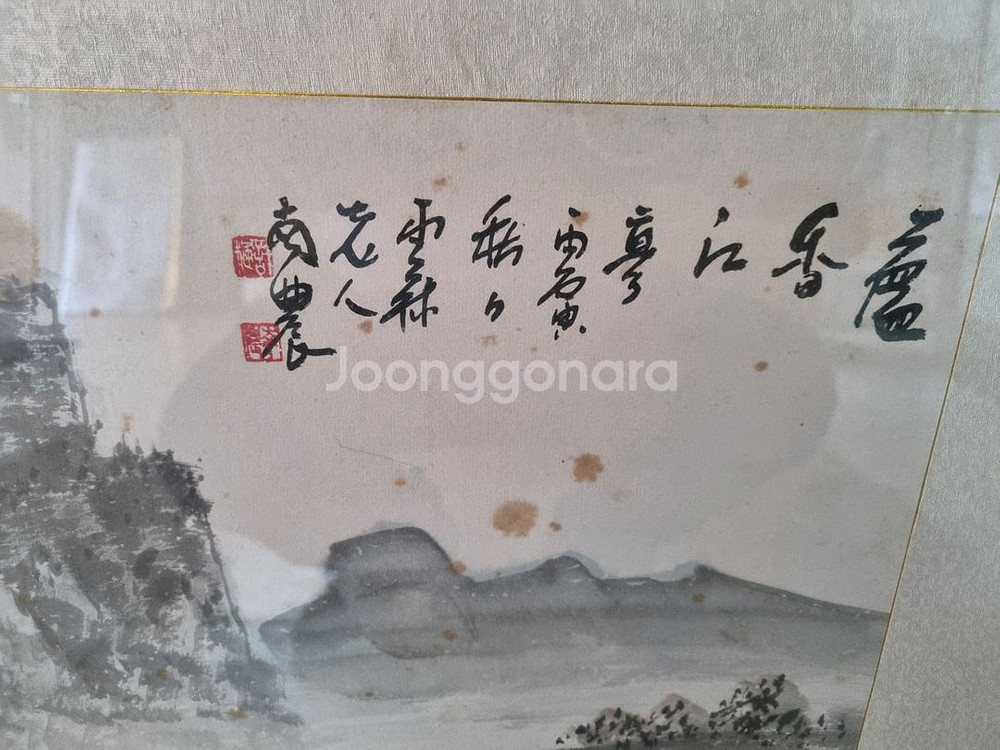 蘆
香
江
亭
丙寅
秋日
雲林
老人
南農
Joonggonara